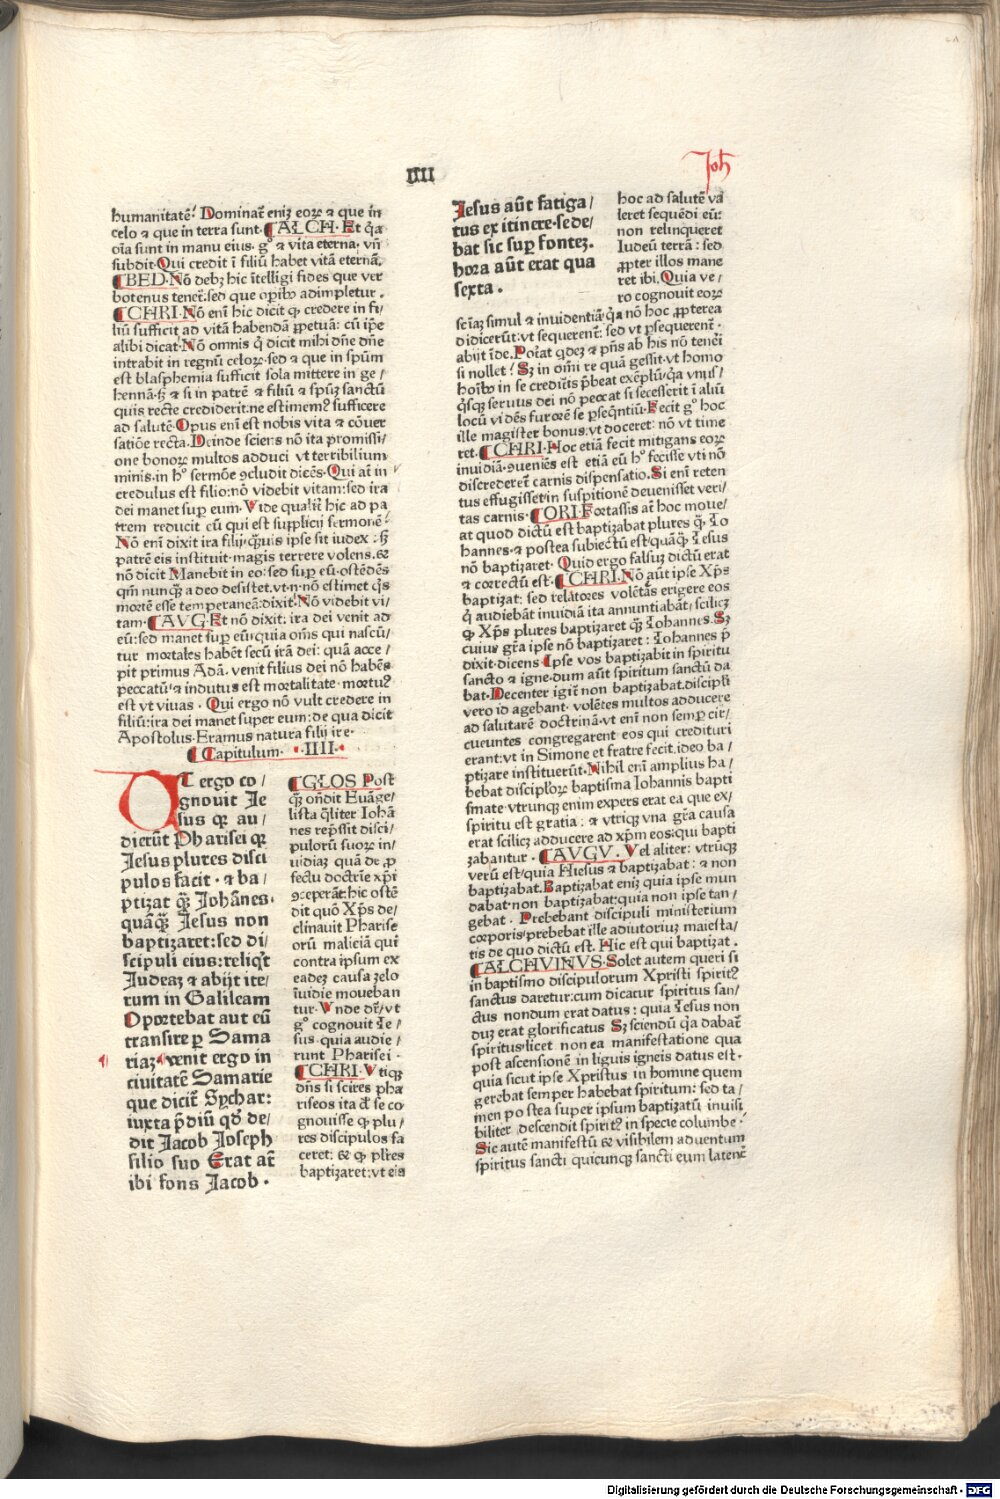 IIII
Joh
humanitatē. Dominat̄ enīz eoꝝ ⁊ que in
celo ⁊ que in terra sunt. ALCH. Et q̄a
oīa sunt in manu eius. gͦ ⁊ vita eterna. vn̄
subdit. Qui credit ī filiū habet vitā eternā.
BED. Nō debꝫ hic ītelligi fides que ver
botenus tenet̄. sed que opībꝰ adimpletur.
CHRI. Nō enī hic dicit ꝙ credere in fi/
liū sufficit ad vitā habendā ꝑpetuā: cū ip̄e
alibi dicat. Nō omnis q̄ dicit mihi dn̄e dn̄e
intrabit in regnū celoꝝ. sed ⁊ que in spūm
est blasphemia sufficit sola mittere in ge/
hennā. sꝫ ⁊ si in patrē ⁊ filiū ⁊ spūꝫ sanctū
quis recte crediderit. ne estimemꝰ sufficere
ad salutē. Opus enī est nobis vita ⁊ cōuer
satiōe recta. Deinde sciens nō ita promissi/
one bonoꝝ multos adduci vt terribilium
minis. in hͦ sermōe ꝯcludit dicēs. Qui at̄ in
credulus est filio: nō videbit vitam: sed ira
dei manet suꝑ eum. Vide qualit̄ hic ad pa
trem reducit cū qui est supplicij sermonē.
Nō enī dixit ira filij: q̄uis ipse sit iudex: sꝫ
patrē eis instituit. magis terrere volens. &
nō dicit Manebit in eo: sed suꝑ eū. ostēdēs
qm̄ nunq̄ꝫ a deo desistet. vt. n. nō estimet q̄s
mortē esse temperaneā: dixit. Nō videbit vi/
tam. AVG. Et nō dixit: ira dei venit ad
eū: sed manet suꝑ eū: quia om̄s qui nascū/
tur mortales habēt secū irā dei: quā acce/
pit primus Adā. venit filius dei nō habēs
peccatū: ⁊ indutus est mortalitate. mortuꝰ
est vt viuas. Qui ergo nō vult credere in
filiū: ira dei manet super eum: de qua dicit
Apostolus. Eramus natura filij ire.
Capitulum. .IIII.
UT ergo co/
gnouit Je
sus qꝛ au/
dierūt Pharisei qꝛ
Jesus plures disci
pulos facit. ⁊ ba/
ptizat q̄ꝫ Johānes.
quāq̄ꝫ Jesus non
baptizaret: sed di/
scipuli eius: reliqt
Judeaꝫ ⁊ abijt ite/
rum in Galileam
Oportebat aut eū
transire ꝑ Sama
riaꝫ. venit ergo in
ciuitatē Samarie
que dicit̄ Sychar:
iuxta p̄diū qd̄ de/
dit Jacob Joseph
filio suo Erat at̄
ibi fons Jacob.
GLOS Post
q̄ꝫ on̄dit Euāge/
lista q̄liter Iohā
nes rep̄ssit disci/
pulorū suoꝝ in/
uidiaꝫ quā de ꝓ
fectu doctrīe xp̄i
ꝯceperāt: hic ostē
dit quō Xp̄s de/
clinauit Pharise
orū maliciā qui
contra ipsum ex
eadeꝫ causa zelo
īuidie moueban
tur. Vnde dr̄: vt
gͦ cognouit Ie/
sus. quia audie/
runt Pharisei.
CHRI. Vtiqꝫ
dn̄s si scires pha
riseos ita dt̄ se co
gnouisse ꝙ plu/
res discipulos fa
ceret: & ꝙ plr̄es
baptizaret: vt eis
Iesus aūt fatiga/
tus ex itinere. sede/
bat sic suꝑ fonteꝫ.
hora aūt erat qua
sexta.
hoc ad salutē va
leret sequēdi eū:
non relinqueret
Iudeū terrā: sed
ꝓpter illos mane
ret ibi. Quia ve/
ro cognouit eoꝝ
sciāꝫ simul ⁊ inuidentiā: q̄a nō hoc ꝓpterea
didicerūt: vt sequerent̄: sed vt ꝑsequerent̄.
abijt īde. Poт̄at qdeꝫ ⁊ p̄ns ab his nō tenēi
si nollet. Sꝫ in om̄i re quā gessit. vt homo
hoībꝰ in se credit̄is p̄beat exēplū: q̄a vnus/
q̄sqꝫ seruus dei nō peccat si secesserit ī aliū
locū vidēs furorē se ꝑseq̄ntiū. Fecit gͦ hoc
ille magister bonus: vt doceret: nō vt time
ret. CHRI. Hoc etiā fecit mitigans eoꝝ
inuidiā. ꝯueniēs est etiā eū hͦ fecisse vti nō
discrederet̄ carnis dispensatio. Si enī reten
tus effugisset: in suspitionē deuenisset veri/
tas carnis. ORI. Fortassis at̄ hoc moue/
at quod dictū est baptizabat plures q̄ꝫ Io
hannes. ⁊ postea subiectū est: quāq̄ꝫ Iesus
nō baptizaret. Quid ergo falsuꝫ dictū erat
⁊ correctū est. CHRI. Nō aūt ipse Xp̄s
baptizat: sed relatores volētes erigere eos
q̄ audiebāt inuidiā ita annuntiabāt: scilicꝫ
ꝙ Xp̄s plures baptizaret q̄ꝫ Iohannes. Sꝫ
cuius gr̄a ipse nō baptizaret: Iohannes p̄
dixit dicens Ipse vos baptizabit in spiritu
sancto ⁊ igne. dum aūt spiritum sanctū da
bat. Decenter igit̄ non baptizabat. discipli
vero id agebant. volētes multos adducere
ad salutarē doctrinā. vt enī non semꝑ cir/
cueuntes congregarent eos qui credituri
erant: vt in Simone et fratre fecit. ideo ba/
ptizare instituerūt. Nihil enī amplius ha/
bebat disciploꝝ baptisma Iohannis bapti
smate. vtrunqꝫ enim expers erat ea que ex/
spiritu est gratia: ⁊ vtriqꝫ vna gr̄a causa
erat scilicꝫ adducere ad xp̄m eos: qui bapti
zabantur. AVGV. Vel aliter: vtrūqꝫ
verū est: quia Hiesus ⁊ baptizabat: ⁊ non
baptizabat. Baptizabat enīz quia ipse mun
dabat. non baptizabat: quia non ipse tan/
gebat. Prebebant discipuli ministerium
corporis: prebebat ille adiutoriuꝫ maiesta/
tis de quo dictū est. Hic est qui baptizat.
ALCHVINVS. Solet autem queri si
in baptismo discipulorum Xpristi spiritꝰ
sanctus daretur: cum dicatur spiritus san/
ctus nondum erat datus: quia Iesus non
duꝫ erat glorificatus. Sꝫ sciendū q̄a dabat̄
spiritus: licet non ea manifestatione qua
post ascensionē in liguis igneis datus est.
quia sicut ipse Xpristus in homine quem
gerebat semper habebat spiritum: sed ta/
men postea super ipsum baptizatū inuisi
biliter descendit spiritꝰ in specie columbe.
Sic autē manifestū & visibilem aduentum
spiritus sancti quicunqꝫ sancti eum latent̄
Digitalisierung gefördert durch die Deutsche Forschungsgemeinschaft - DFG